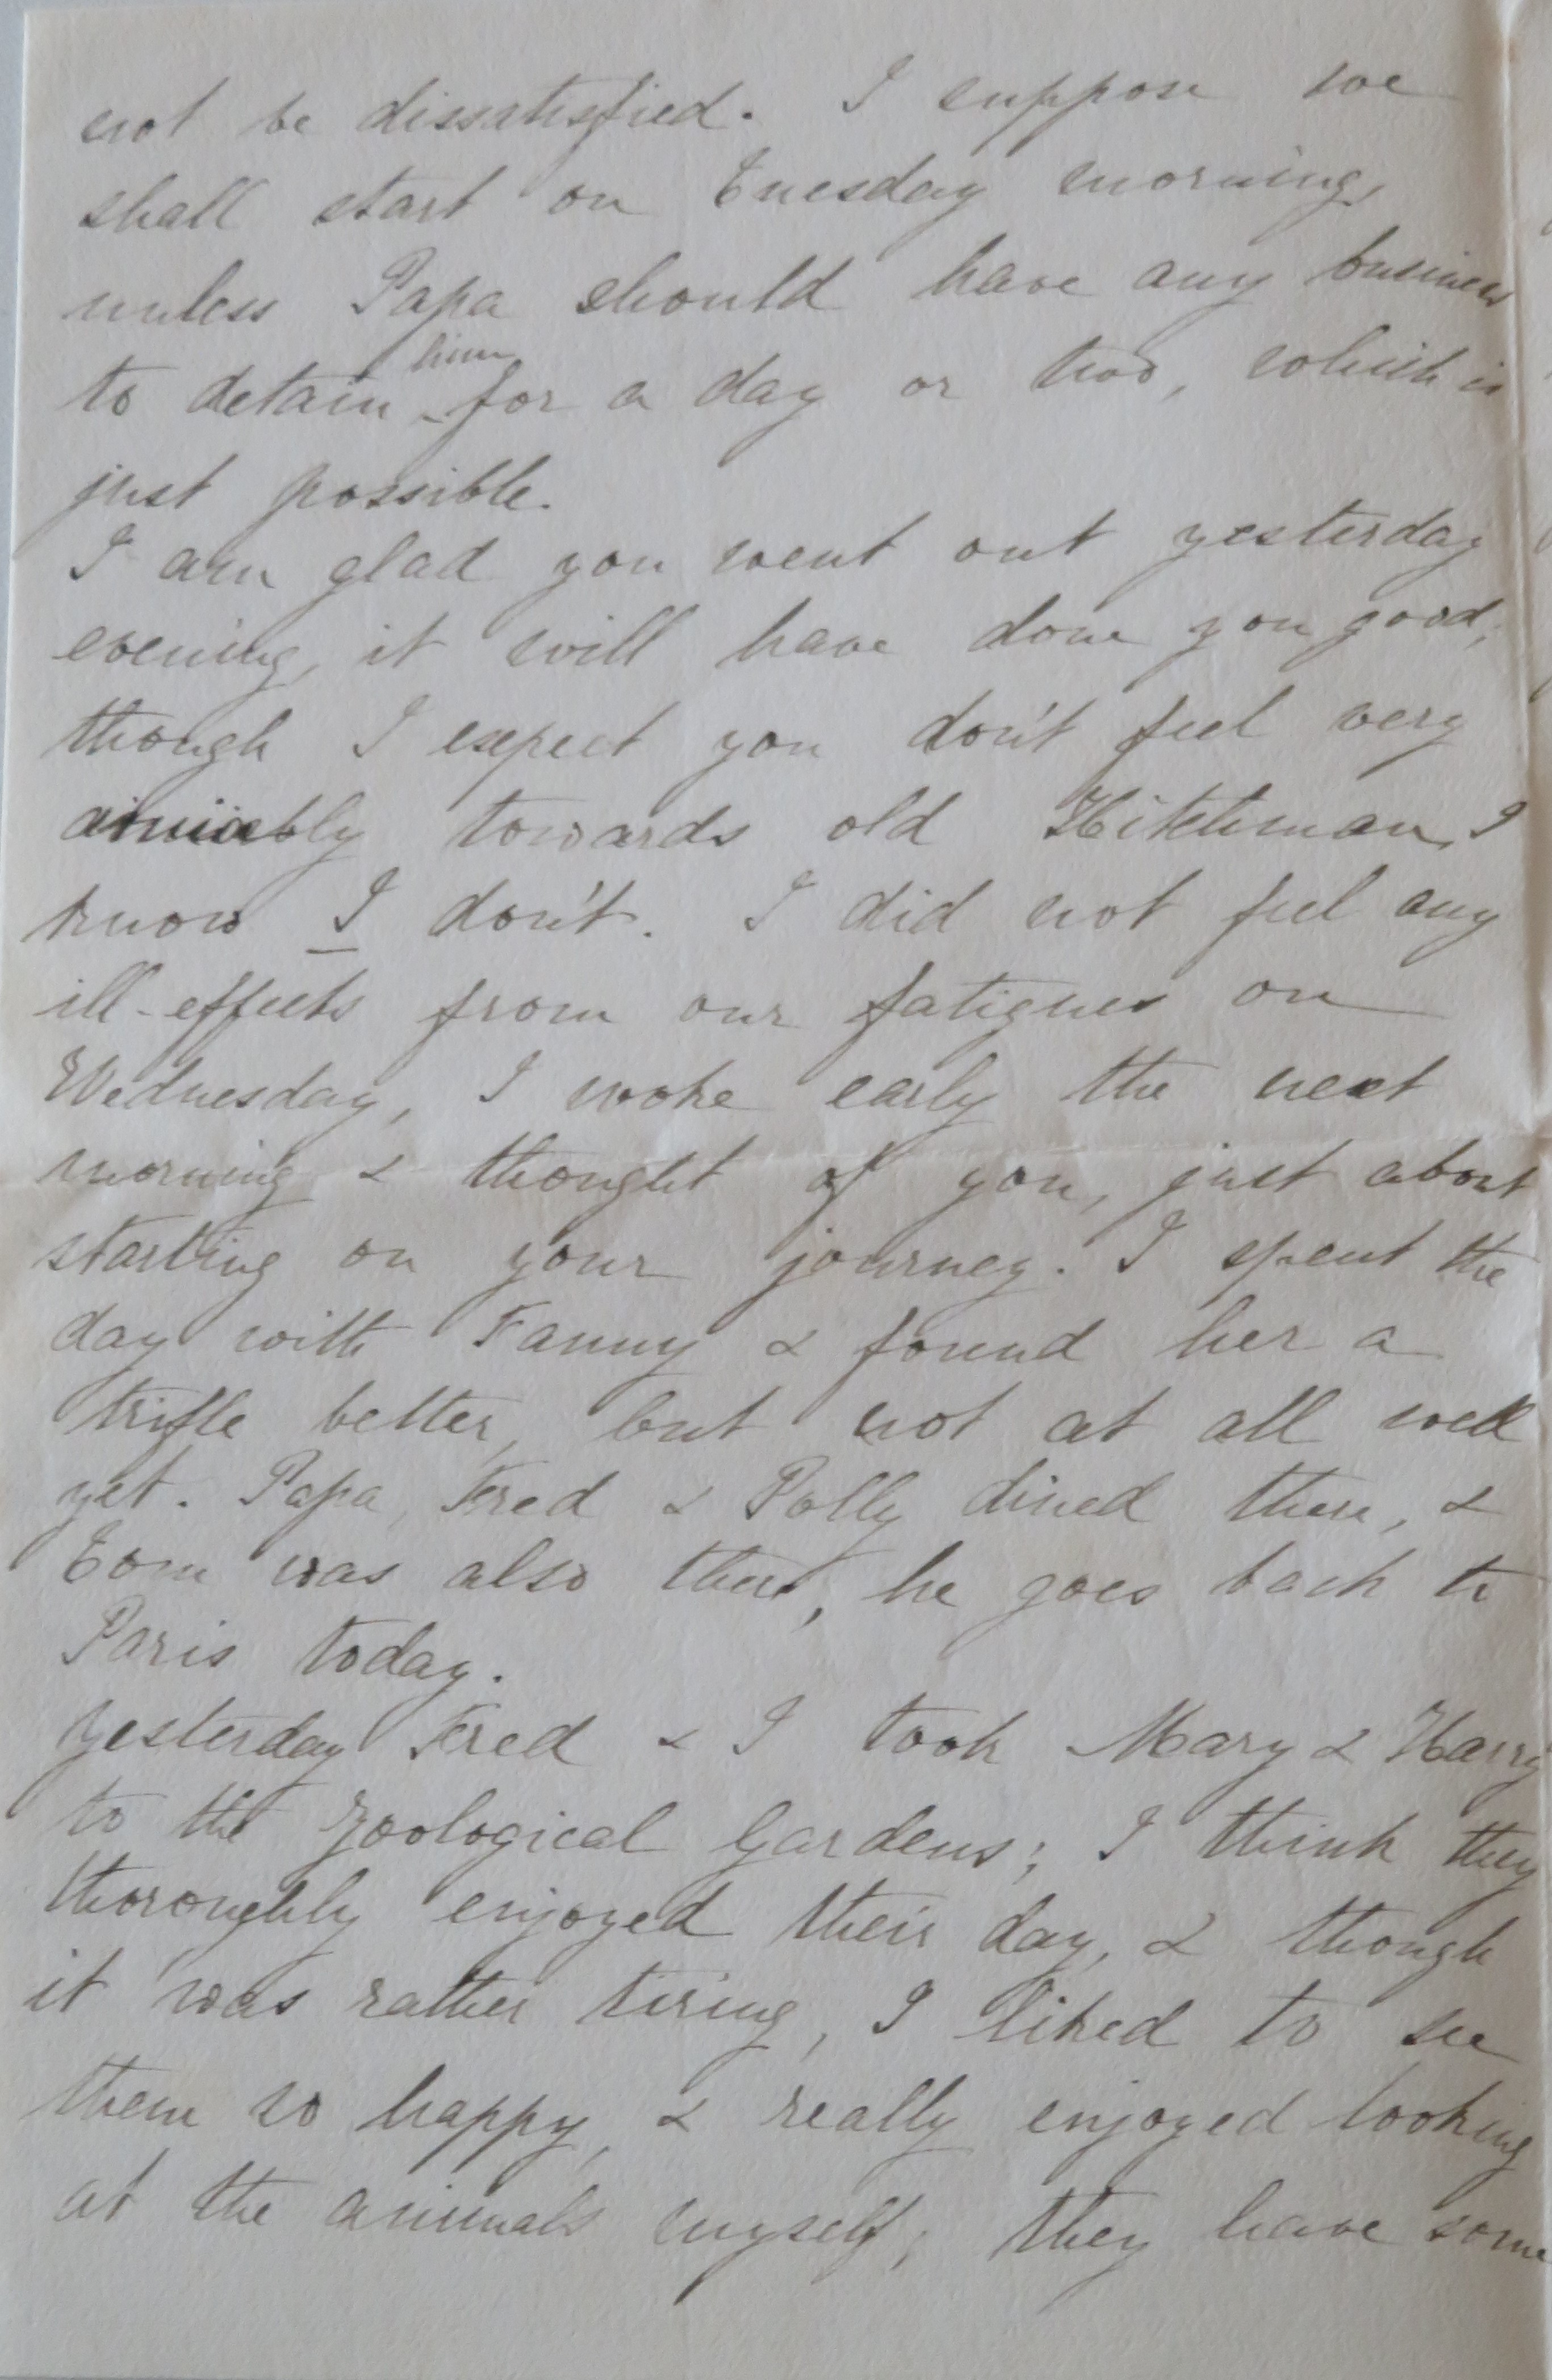 not be dissatisfied. I suppose we
shall start on Tuesday morning,
unless Papa should have any business
to detain him for a day or two, which is
just possible.
I am glad you went out yesterday
evening, it will have done you good,
though I expect you don't feel very
amiably towards old Hitchman, I
know I don't. I did not feel any
ill-effects from our fatigues on
Wednesday, I woke early the next
morning & thought of you, just about
starting on your journey. I spent the
day with Fanny & found her a
trifle better, but not at all well
yet. Papa, Fred & Polly dined there, &
Tom was also there, he goes back to
Paris today.
Yesterday Fred & I took Mary & Harry
to the Zoological Gardens; I think they
thoroughly enjoyed their day, & though
it was rather tiring, I liked to see
them so happy, & really enjoyed looking
at the animals myself; they have some